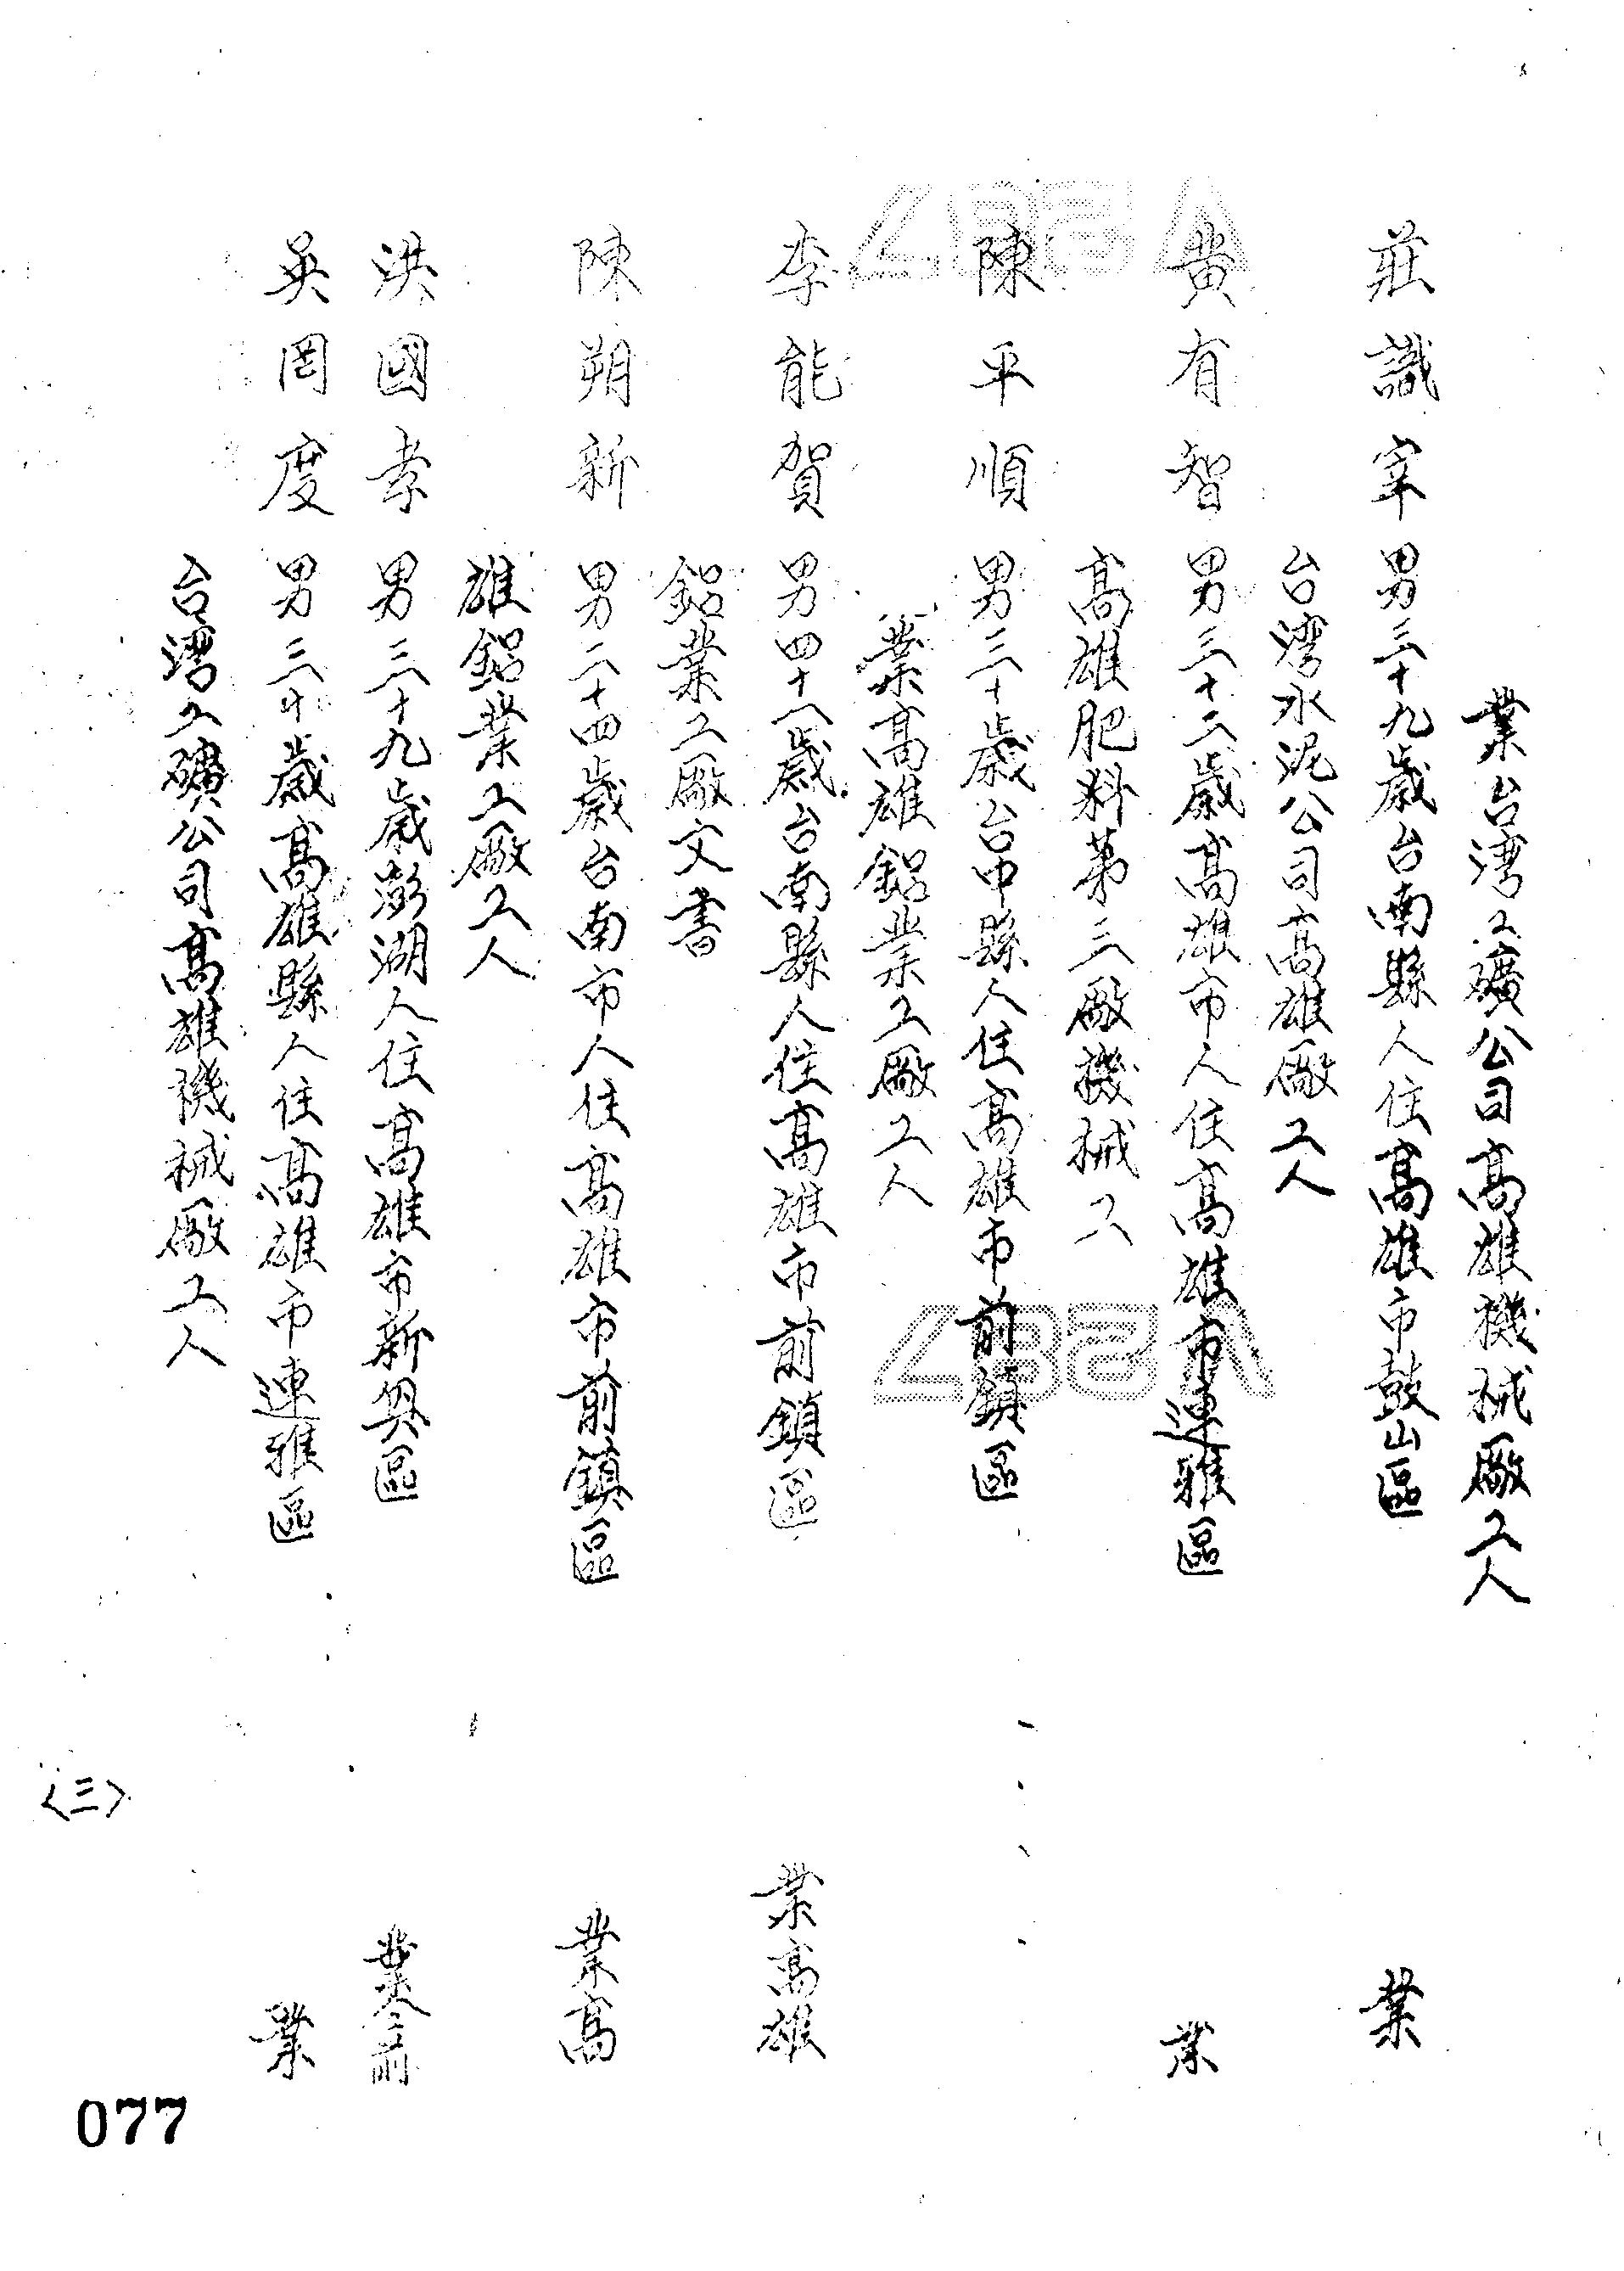 業台湾工礦公司高雄機械廠工人
莊識宰 男三十九歲台南縣人住高雄市鼓山區 業
台湾水泥公司高雄廠工人
黄有智 男三十二歲高雄市人住高雄市連雅區 業
高雄肥料第三廠機械工
陳平順 男三十歲台中縣人住高雄市前鎮區
業高雄鋁業工廠工人
李能賀 男四十八歲台南縣人住高雄市前鎮區 業高雄
鋁業工廠文書
陳朔新 男二十四歲台南市人住高雄市前鎮區 業高
雄鋁業工廠工人
洪國孝 男三十九歲澎湖人住高雄市新興區 業仝前
吳岡度 男三十歲高雄縣人住高雄市連雅區 業
台湾工礦公司高雄機械廠工人
〈三〉
077